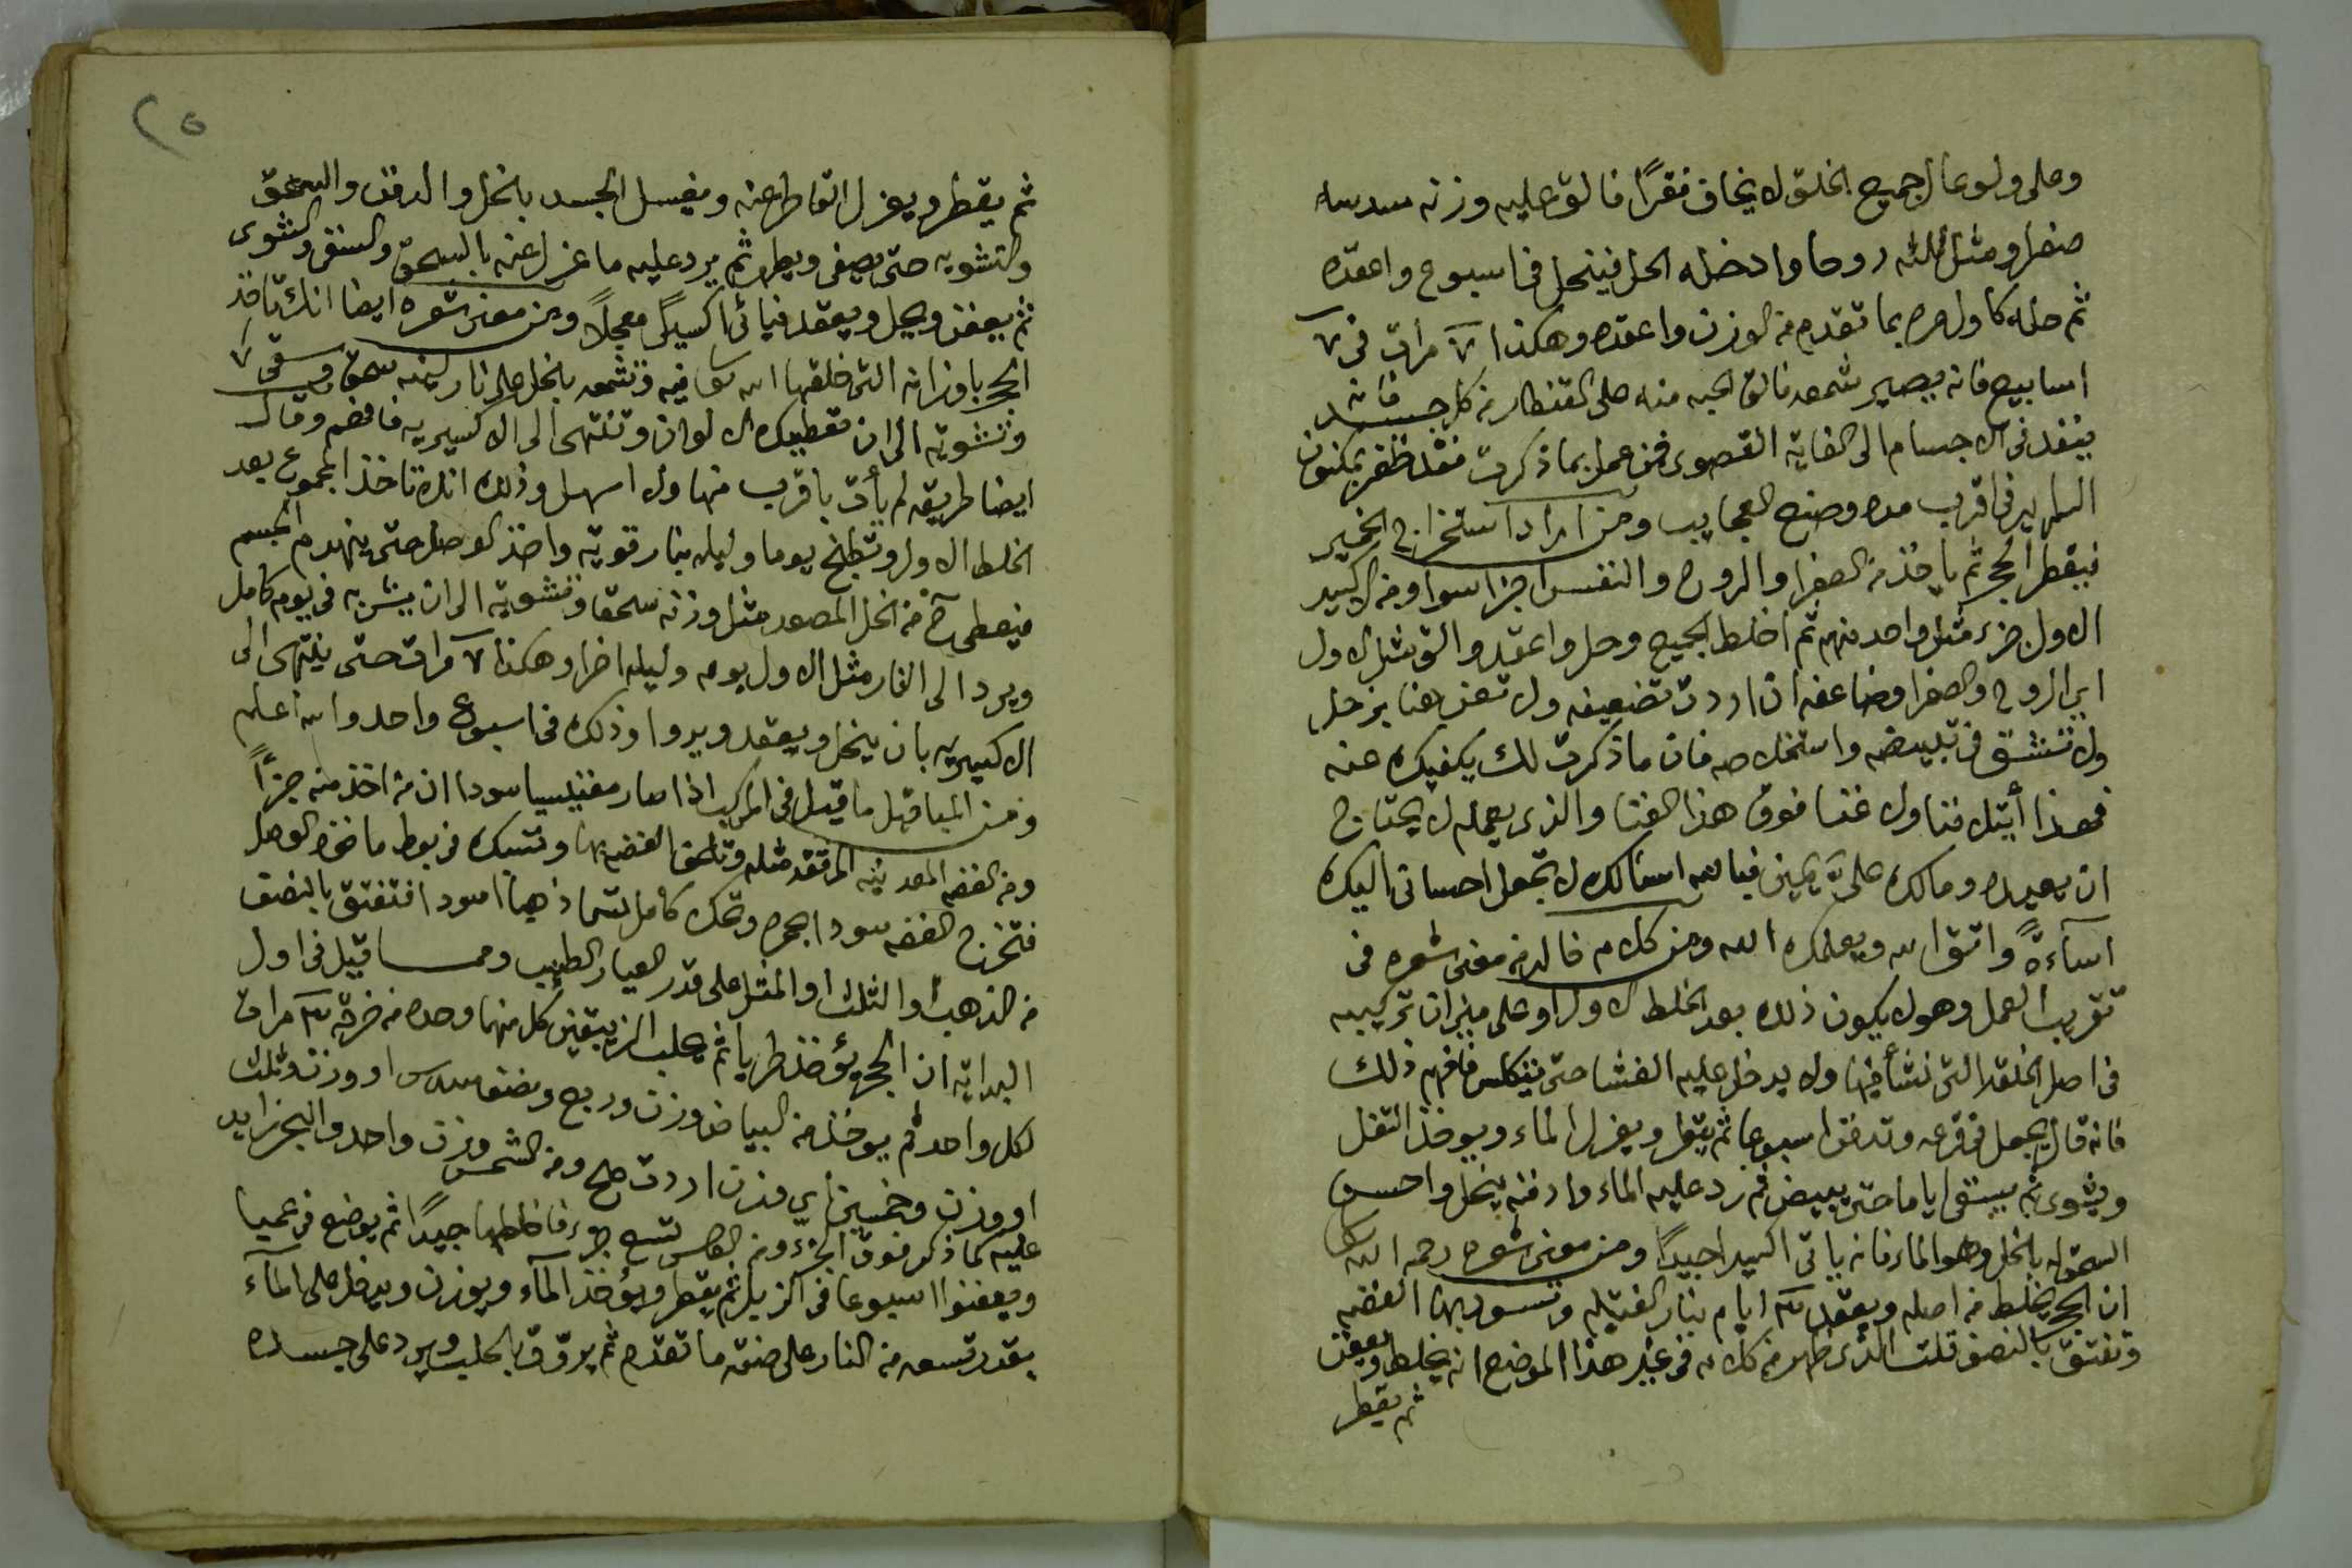 وعلى ولو عال جميع الخلق لا يخاف فقرًا فالق عليه وزنه سدسه
صفرا ومثل ثلثه روحا وادخله الحل فينحل في اسبوع واعقده
ثم حله كاول مره بما تقدم من الوزن واعقده وهكذا ٧ مرات في ٧
اسابيع فانه يصير شمعه فالق الحبه منه على القنطار من كل جسد فانه
ينفد في الاجسام الى الغاية القصوى فمن عمل بما ذكرت فقد ظفر بمكنون
في اقرب مده وصنع العجايب ومن اراد استخراج الخمير
فيقطر الحجر ثم ياخذ من الصفرا والروح والنفس اجزا سوا ومن الاكسير
الاول جزء مثل واحد منهم ثم اخلط الجميع وحل واعقد والق مثل الاول
اي الروح والصفرا وضاعفه ان اردت تضعيفه ولا
ولا في تبييضه واستخلاصه فان ما ذكرت لك يكفيك عنه
فما غنا فوق هذا الغنا والذي يعمله لا يحتاج
ان يعيده ومالك على يمين فبالله اسالك لا تجعل احساني اليك
اسآءةً واتق الله ويعلمك الله ومن كلام خالد من معنى شعره في
تقريب العمل وهو لا يكون ذلك بعد الخلط الاول او على ميزان تركيبه
في اصل الخلقة التي نشأ فيها ولا يدخل عليه الغشا حتى يتكلس فافهم ذلك
فانه قال يجعل في قرعه وتدفن اسبوعا ثم يقطر ويعزل الماء ويوخذ الثفل
ويشوى ثم يسقى اياما حتى يبيض ثم رد عليه الماء وادفنه ينحل واحسن
السحق له بالخل وهو الماء فانه ياتي اكسيرا جيدًا ومن معنى شعره رحمه الله
ان الحجر يخلط من اصله ويعقد ٣ ايام بنار الفتيله وتسود بها الفضه
وتفتق بالنصف قلت الذي ظهر من كلامه في غير هذا الموضع انه يخلط ويعفن
ثم يقطر
٢٥
ثم يقطر ويعزل القاطر عنه ويغسل الجسد بالخل والدفن والسحق
والتشويه حتى يصفى ويطهر ثم يرد عليه ما عزل عنه بالسحق والسقى والشوى
ثم يعفن ويحل ويعقد فياتي اكسيرًا معجلًا ومن معنى شعره ايضا انك تاخذ
الحجر باوزانه التي خلقها الله تعالى فيه وتشمعه بالخل على نار لينه سحق وسقى ٧
وتشويه الى ان تعطيك الالوان وتنتهى الى الاكسيريه فافهم وقال
ايضا طريقه لم يأت باقرب منها ولا اسهل وذلك انك تاخذ المجموع بعد
الخلط الاول وتطبخ يوما وليله بنار قويه واخذ الوصل حتى ينهدم الجسم
فيعطى من الخل المصعد مثل وزنه سحقا وتشويه الى ان يشربه في يوم كامل
ويرد الى النار مثل الاول يوم وليله اخرا وهكذا ٧ مرات حتى ينتهى الى
الاكسيريه بان ينحل ويعقد ويدوا وذلك في اسبوع واحد والله اعلم
ومن ما قيل في المركب اذا صار مغنيسيا سودا ان من اخذ منه جزأً
ومن الفضه المعدنيه مثله وتلقى الفضه بها وتسبك في بوط ماخوذ الوصل
فتخرج الفضه سودا وتحك كامل اسود افتفتق بالنصف
من الذهب او الثلث او المثل على قدر العيار الطيب ومما قيل في اول
البدايه ان الحجر يؤخذ طريا ثم يحلب الزيبقين كل منهما وحده من خرقه ٣ مرات
لكل واحد ثم يوخذ من البياض وزن وربع ونصف سدس او وزن وثلث
او وزن وخمسين اي وزن اردت صح ومن الشمس وزن واحد والبحر زايد
عليه كما ذكر فوق الجزء ومن تسع جزء فاخلطها جيدًا ثم يوضع في عميا
ويعفنوا اسبوعا في الزبل ثم يقطر ويؤخذ المآء ويوزن ويدخل على المآء
بقدر تسعه من النار على صفه ما تقدم ثم يروق بالحلب ويرد على جسده